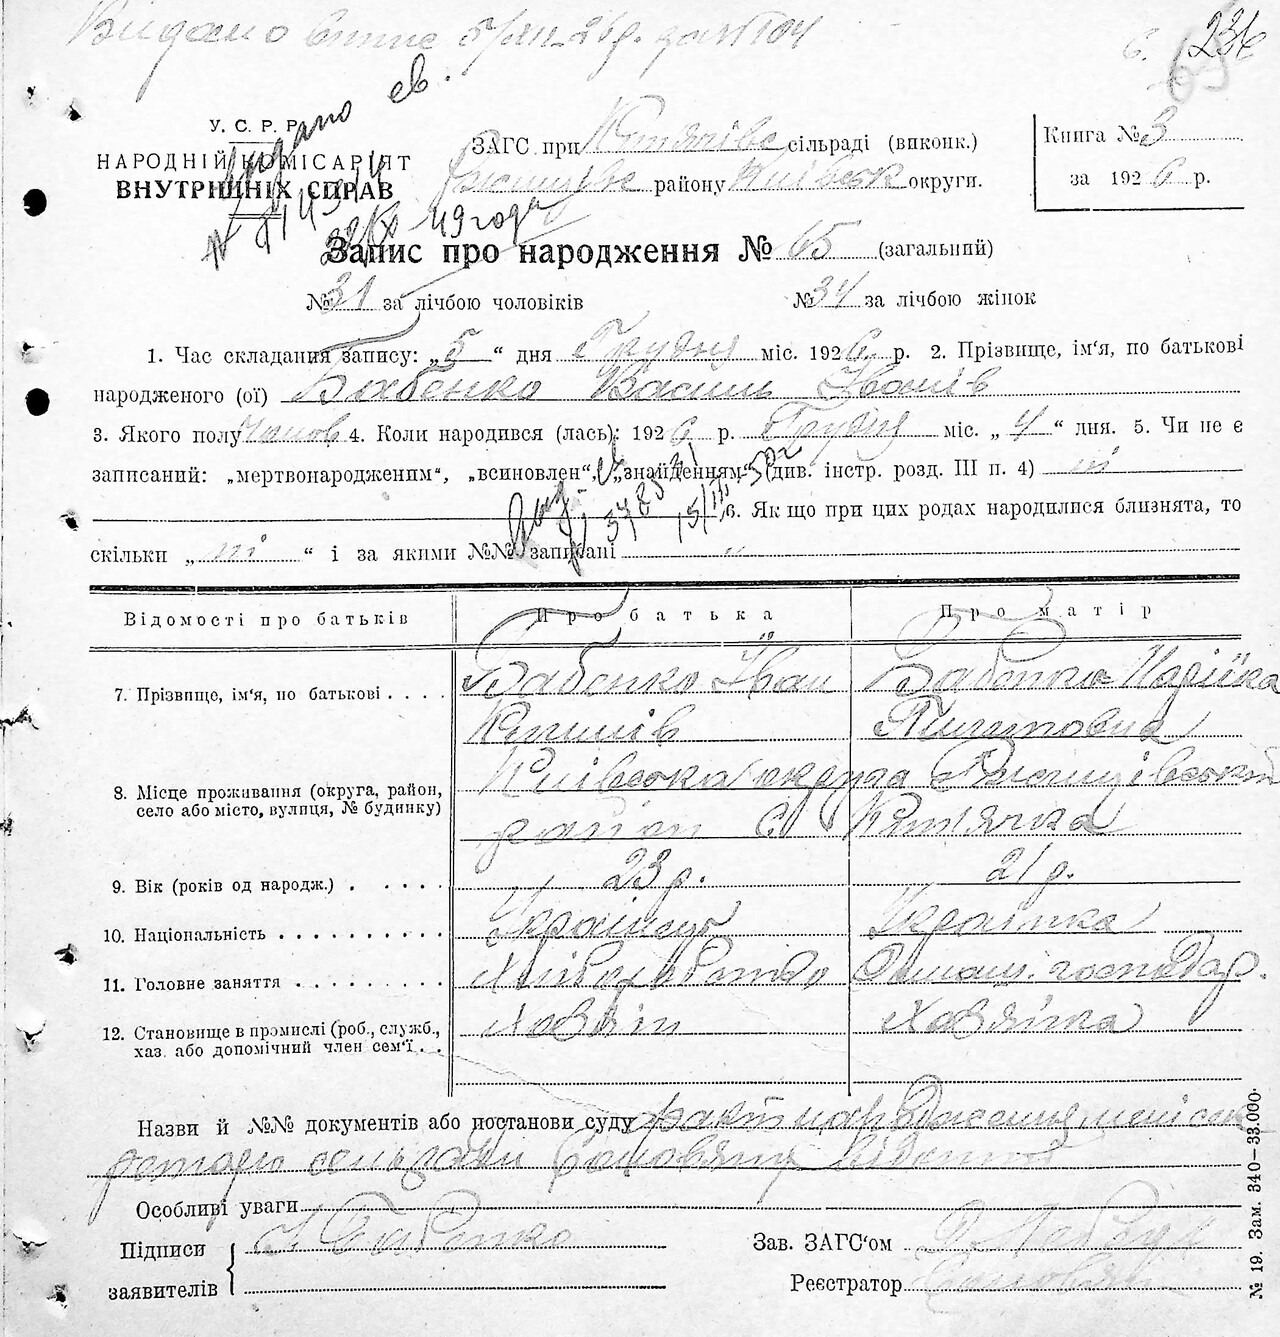 Видано 5/XII-26р. за №104
236
У. С. Р. Р.
НАРОДНІЙ КОМІСАРІЯТ
ВНУТРІШНІХ СПРАВ
Видано св.
49 года
ЗАГС при сільраді (виконк.)
району Київськ округи.
Книга № 3
за 1926 р.
Запис про народження № 65 (загальний)
№ 31 за лічбою чоловіків № 34 за лічбою жінок
1. Час складання запису: „5“ дня Грудня міс. 1926 р. 2. Прізвище, ім'я, по батькові
народженого (ої) Бабенко Василь Іванів
3. Якого полу Чолов 4. Коли народився (лась): 1926 р. Грудня міс. „4“ дня. 5. Чи не є
записаний: „мертвонародженим“, „всиновлен“, „знайденням“ (див. інстр. розд. III п. 4) ні
6. Як що при цих родах народилися близнята, то
скільки „ні“ і за якими №№ записані "
Відомості про батьків Про батька Про матір
7. Прізвище, ім'я, по батькові . . . . Бабенко Іван Бабенко Марійка
8. Місце проживання (округа, район, Київська округа
село або місто, вулиця, № будинку) район С.
9. Вік (років од народж.) . . . . . 23 р. 21 р.
10. Національність . . . . . . . . . . Українець Українка
11. Головне заняття . . . . . . . . . Хліборобство Домаш. господар.
12. Становище в промислі (роб., служб.,
хаз. або допомічний член сем'ї . . Хазяїн Хазяйка
Назви й №№ документів або постанови суду факт народження
Особливі уваги
Підписи І. Бабенко Зав. ЗАГС'ом
заявителів Реєстратор
№ 19. Зам. 340—33.000.